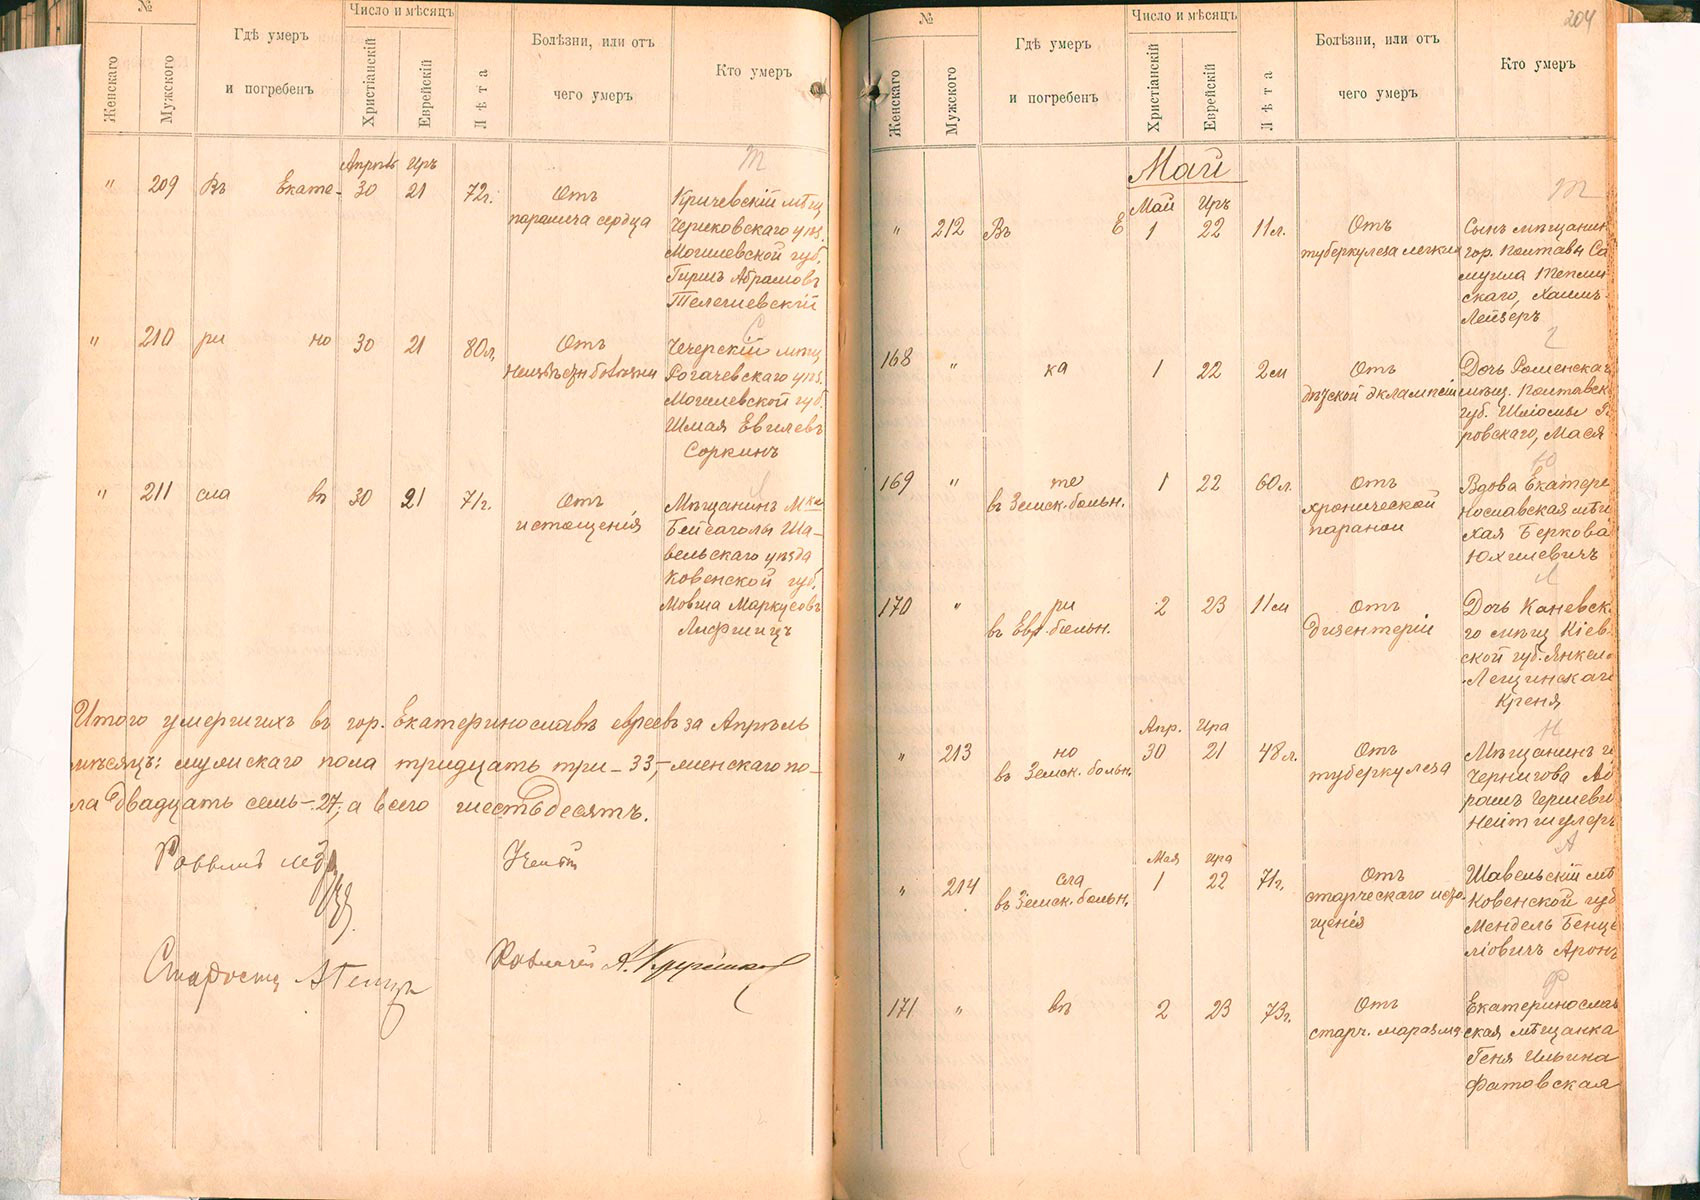 №
Число и мѣсяцъ
Женскаго
Мужского
Гдѣ умеръ
и погребенъ
Христіанскій
Еврейскій
Лѣта
Болѣзни, или отъ
чего умеръ
Кто умеръ
Т
Апрѣль Иръ
" 209 Въ Екате- 30 21 72г. Отъ
паралича сердца
Кричевскій мѣщ
Чериковскаго уѣз.
Могилевской губ.
Гиршъ Абрамовъ
Телешевскій
С
" 210 ри но 30 21 80л. Отъ
Чечерскій мѣщ
Рогачевскаго уѣз.
Могилевской губ.
Шмая Евилевъ
Соркинъ
" 211 сла вѣ 30 21 71г. Отъ
истощенія
Мѣщанинъ Мка
Бейсаголы Ша-
вельскаго уѣзда
Ковенской губ.
Мовша Маркусовъ
Лифшицъ
Итого умершихъ въ гор. Екатеринославѣ евреевъ за Апрѣль
мѣсяцъ: мужскаго пола тридцать три - 33, - женскаго по-
ла двадцать семь - 27, а всего шестьдесятъ.
Раввинъ
Староста
Казначей
204
№
Число и мѣсяцъ
Женскаго
Мужского
Гдѣ умеръ
и погребенъ
Христіанскій
Еврейскій
Лѣта
Болѣзни, или отъ
чего умеръ
Кто умеръ
Май
Т
Май Иръ
" 212 Въ Е 1 22 11л. Отъ
туберкулеза легких
Сынъ мѣщанин
гор. Полтавы Са
муила Теплиц
скаго, Хаимъ-
Лейзеръ
168 " ка 1 22 2м Отъ
дѣтской эклампсіи
Дочь Роменска
мѣщ. Полтавск
губ. Шліомы
ровскаго, Мася
Ю
169 " те 1 22 60л. Отъ
въ Земск. больн.
хронической
параnoи
Вдова Екатери
нославская мѣщ
Хая Беркова
Юхилевичъ
Л
170 " ри 2 23 11м Отъ
въ Евр. больн.
Дизентеріи
Дочь Каневска
го мѣщ Кіев
ской губ. Янкеля
Лещинскаго
Креня
Н
Апр. Ира
" 213 но 30 21 48л. Отъ
въ Земск. больн.
туберкулеза
Мѣщанинъ г.
Чернигова Аб
рамъ Гершеви
Нейтшулеръ
А
Мая Ира
" 214 сла 1 22 71г. Отъ
въ Земск. больн.
старческаго исто-
щенія
Шавельскій мѣ
Ковенской губ
Мендель Бенце
ліовичъ Аронъ
Ф
171 " вѣ 2 23 73г. Отъ
старч. маразма
Екатеринослав
ская мѣщанка
Геня Ильина
Фатовская